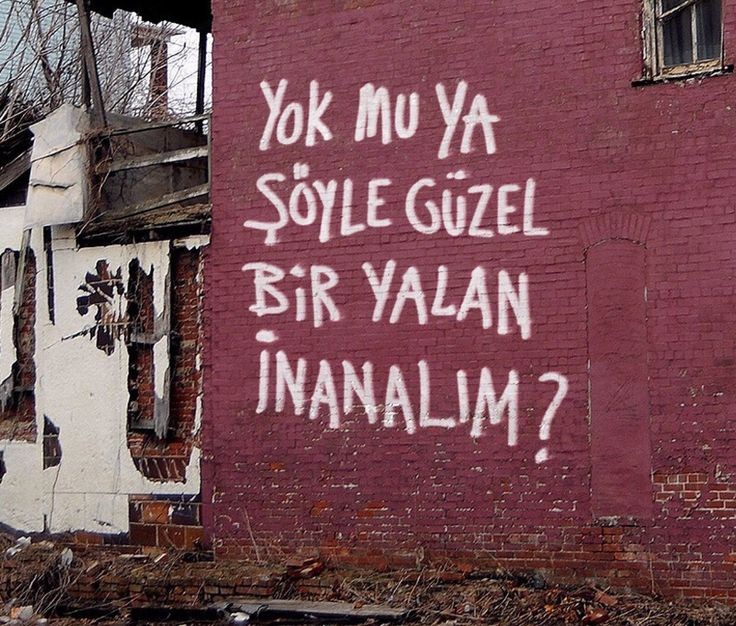 YOK MU YA
ŞÖYLE GÜZEL
BİR YALAN
İNANALIM?